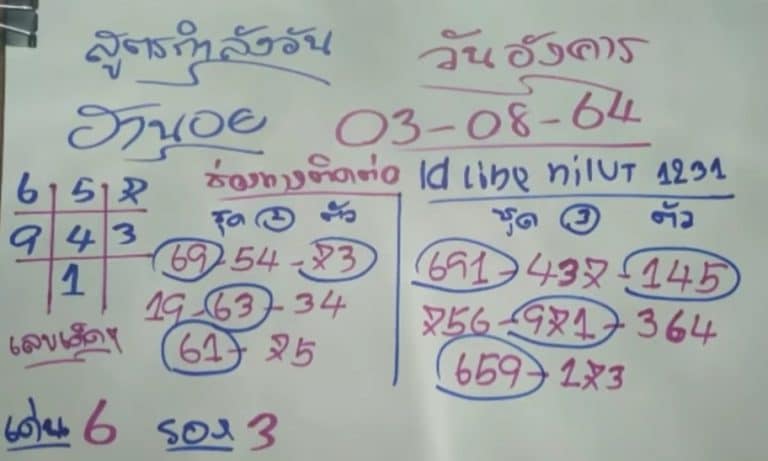 สูตรกำลังวัน วันอังคาร
ฮานอย 03-08-64
6 5 2
9 4 3
1
เลขเด็ดๆ
ช่องทางติดต่อ Id Line nilUT 1231
ชุด 2 ตัว
69-54-23
19-63-34
61-25
ชุด 3 ตัว
691-432-145
256-921-364
659-123
เด่น 6 รอง 3